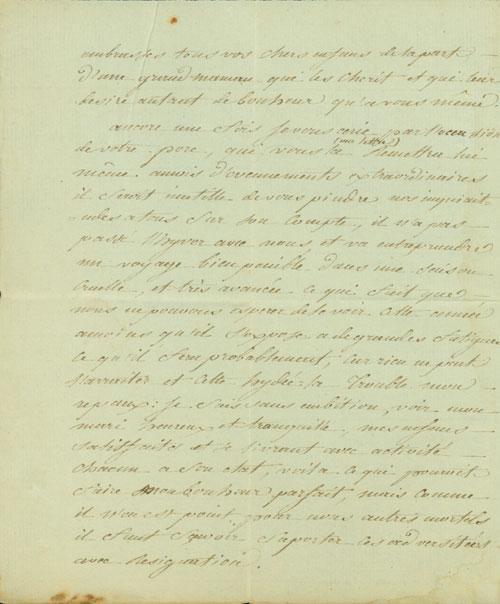 embrasses tous vos chers enfans de la part
d'une grand maman qui les cherit et qui leur
desire autant de bonheur qu'a vous même.
ancore une fois je vous ecrie par l'occasion
de votre pere, qui vous la Remettra lui
(ma lettre)
même. amoin d'evenements extraordinaires
il seroit inutille de vous pindre nos inquiait-
udes a tous sur son compte, il n'a pas
passé l'hyver avec nous et va entreprendre
un voyage bien penible dans une saison
cruelle, et très avancée ce qui fait que
nous ne pouvons esperer de le voir cette année
amoins qu'il s'expose a de grandes fatigues
ce qu'il fera probablement, car rien ne peut
l'arraiter et cette hydée-la trouble mon
repaux: je suis sans embition, voir mon
mari heureux et tranquille, mes enfans
satisffaits et se livrant avec activité
chacun a son etat, voila ce qui pouroit
faire mon bonheur parfait, mais comme
il n'en est point pour nous autres mortels
il faut savoir suporter ces adversitées
avec resignation.